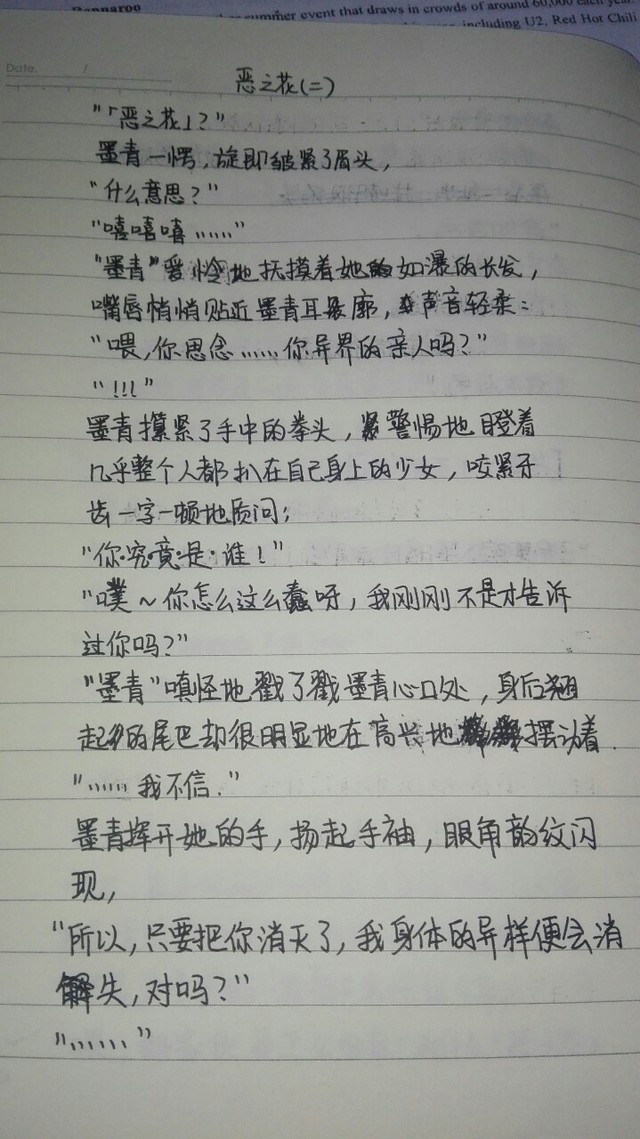 Bonnaroo
summer event that draws in crowds of around 60,000 each year.
including U2, Red Hot Chili
Date. /
恶之花(二)
"「恶之花」?"
墨青一愕,旋即皱紧了眉头,
"什么意思?"
"嘻嘻嘻……"
"墨青"爱怜地抚摸着她如瀑的长发,
嘴唇悄悄贴近墨青耳廓,声音轻柔:
"喂,你思念……你异界的亲人吗?"
"!!!"
墨青攥紧了手中的拳头,警惕地瞪着
几乎整个人都扒在自己身上的少女,咬紧牙
齿一字一顿地质问:
"你·究·竟·是·谁!"
"噗~你怎么这么蠢呀,我刚刚不是才告诉
过你吗?"
"墨青"嗔怪地戳了戳墨青心口处,身后翘
起的尾巴却很明显地在高兴地摆动着.
"……我不信."
墨青挥开她的手,扬起手袖,眼角韵纹闪
现,
"所以,只要把你消灭了,我身体的异样便会消
失,对吗?"
"……"